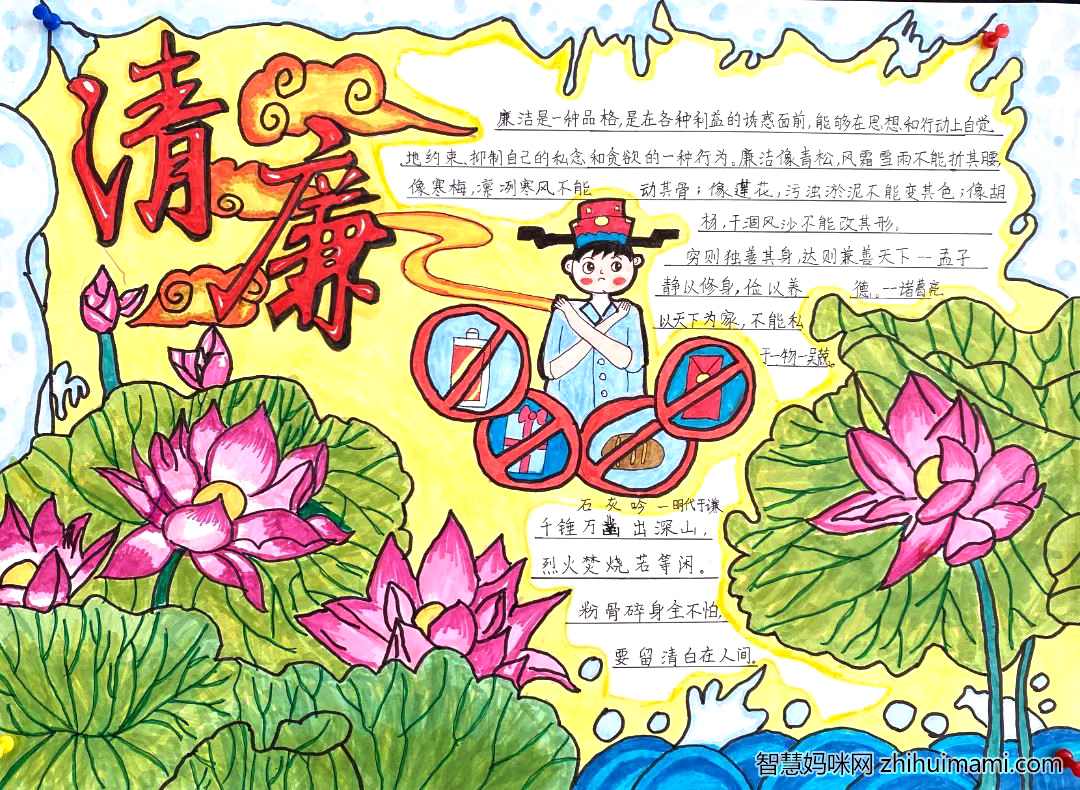 清廉
廉洁是一种品格,是在各种利益的诱惑面前,能够在思想和行动上自觉
地约束、抑制自己的私念和贪欲的一种行为。廉洁像青松,风霜雪雨不能折其腰,
像寒梅,凛冽寒风不能 动其骨;像莲花,污浊淤泥不能变其色;像胡
杨,干涸风沙不能改其形。
穷则独善其身,达则兼善天下一孟子
静以修身,俭以养 德。一诸葛亮
以天下为家,不能私
于一物一吴兢。
石灰吟 一明代于谦
千锤万凿出深山,
烈火焚烧若等闲。
粉骨碎身全不怕,
要留清白在人间。
智慧妈咪网 zhihuimami.com